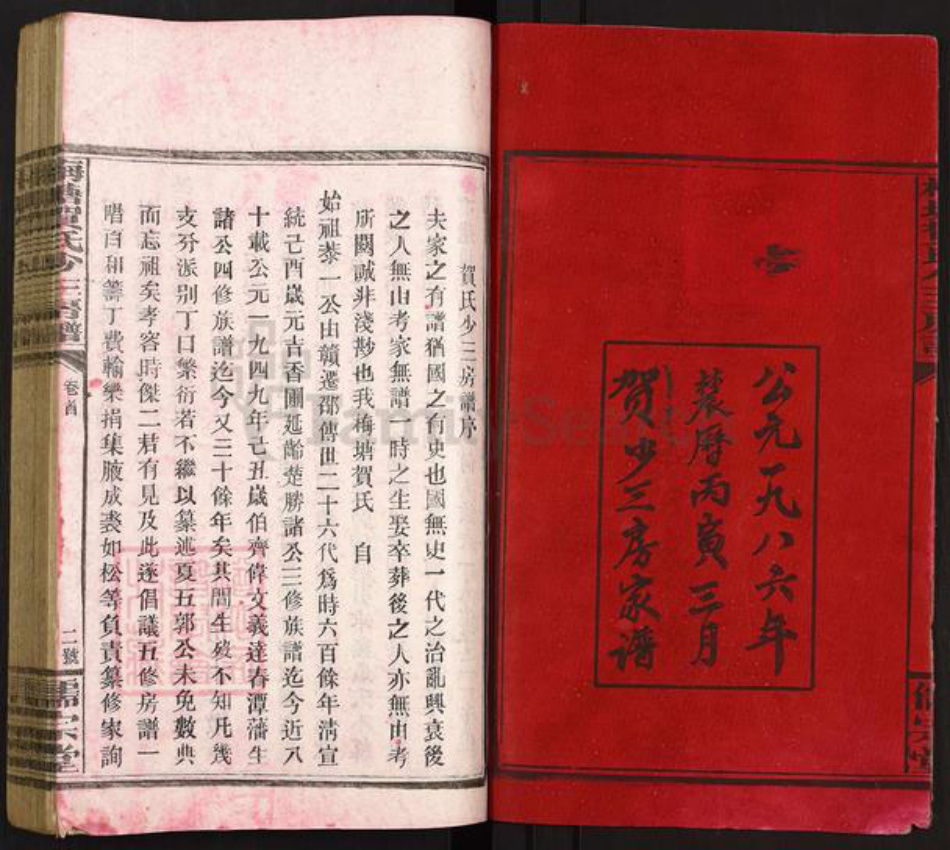 公元一九八六年
農曆丙寅三月
贺少三房家谱
賀氏少三房譜序
夫家之有譜猶國之有史也國無史一代之治亂興衰後
之人無由考家無譜一時之生娶卒葬後之人亦無由考
所關誠非淺尠也我梅塘賀氏 自
始祖黎一公由贛遷邵傳世二十六代爲時六百餘年淸宣
統己酉歲元吉香圃延齡楚勝諸公三修族譜迄今近八
十載公元一九四九年己丑歲伯齊偉文義達春潭藩生
諸公四修族譜迄今又三十餘年矣其間生歿不知凡幾
支分派别丁口繁衍若不繼以纂述夏五郭公未免數典
而忘祖矣孝容時傑二君有見及此遂倡議五修房譜一
唱百和籌丁費輸樂捐集腋成裘如松等負責纂修家詢
梅塘賀氏少三房譜
卷首
二號
儒宗堂
FamilySearch